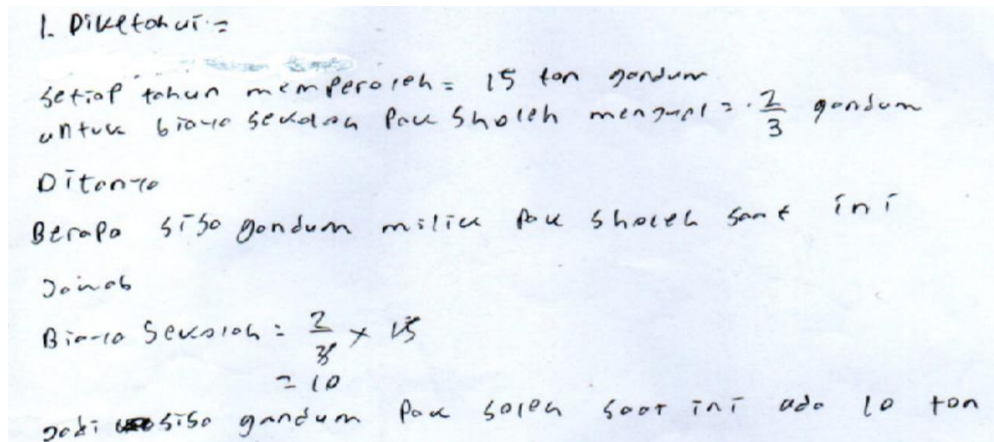 1. Diketahui =
Setiap tahun memperoleh = 15 ton gandum
untuk biaya sekolah Pak Sholeh menjual = 2/3 gandum
Ditanya
Berapa sisa gandum milik Pak Sholeh saat ini
Jawab
Biaya Sekolah = 2/3 x 15
= 10
Jadi sisa gandum Pak Soleh saat ini ada 10 ton